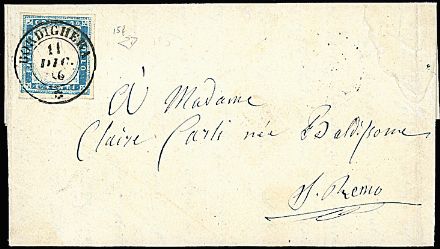 BORDIGHERA
11
DIC.
56
A Madame
Claire Carli née
S. Remo